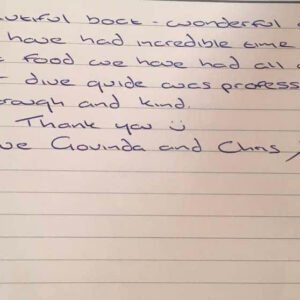 autiful boat - wonderful
have had incredible time
food we have had all
dive guide was profess
orough and kind.
Thank you ü
ve Govinda and Chris